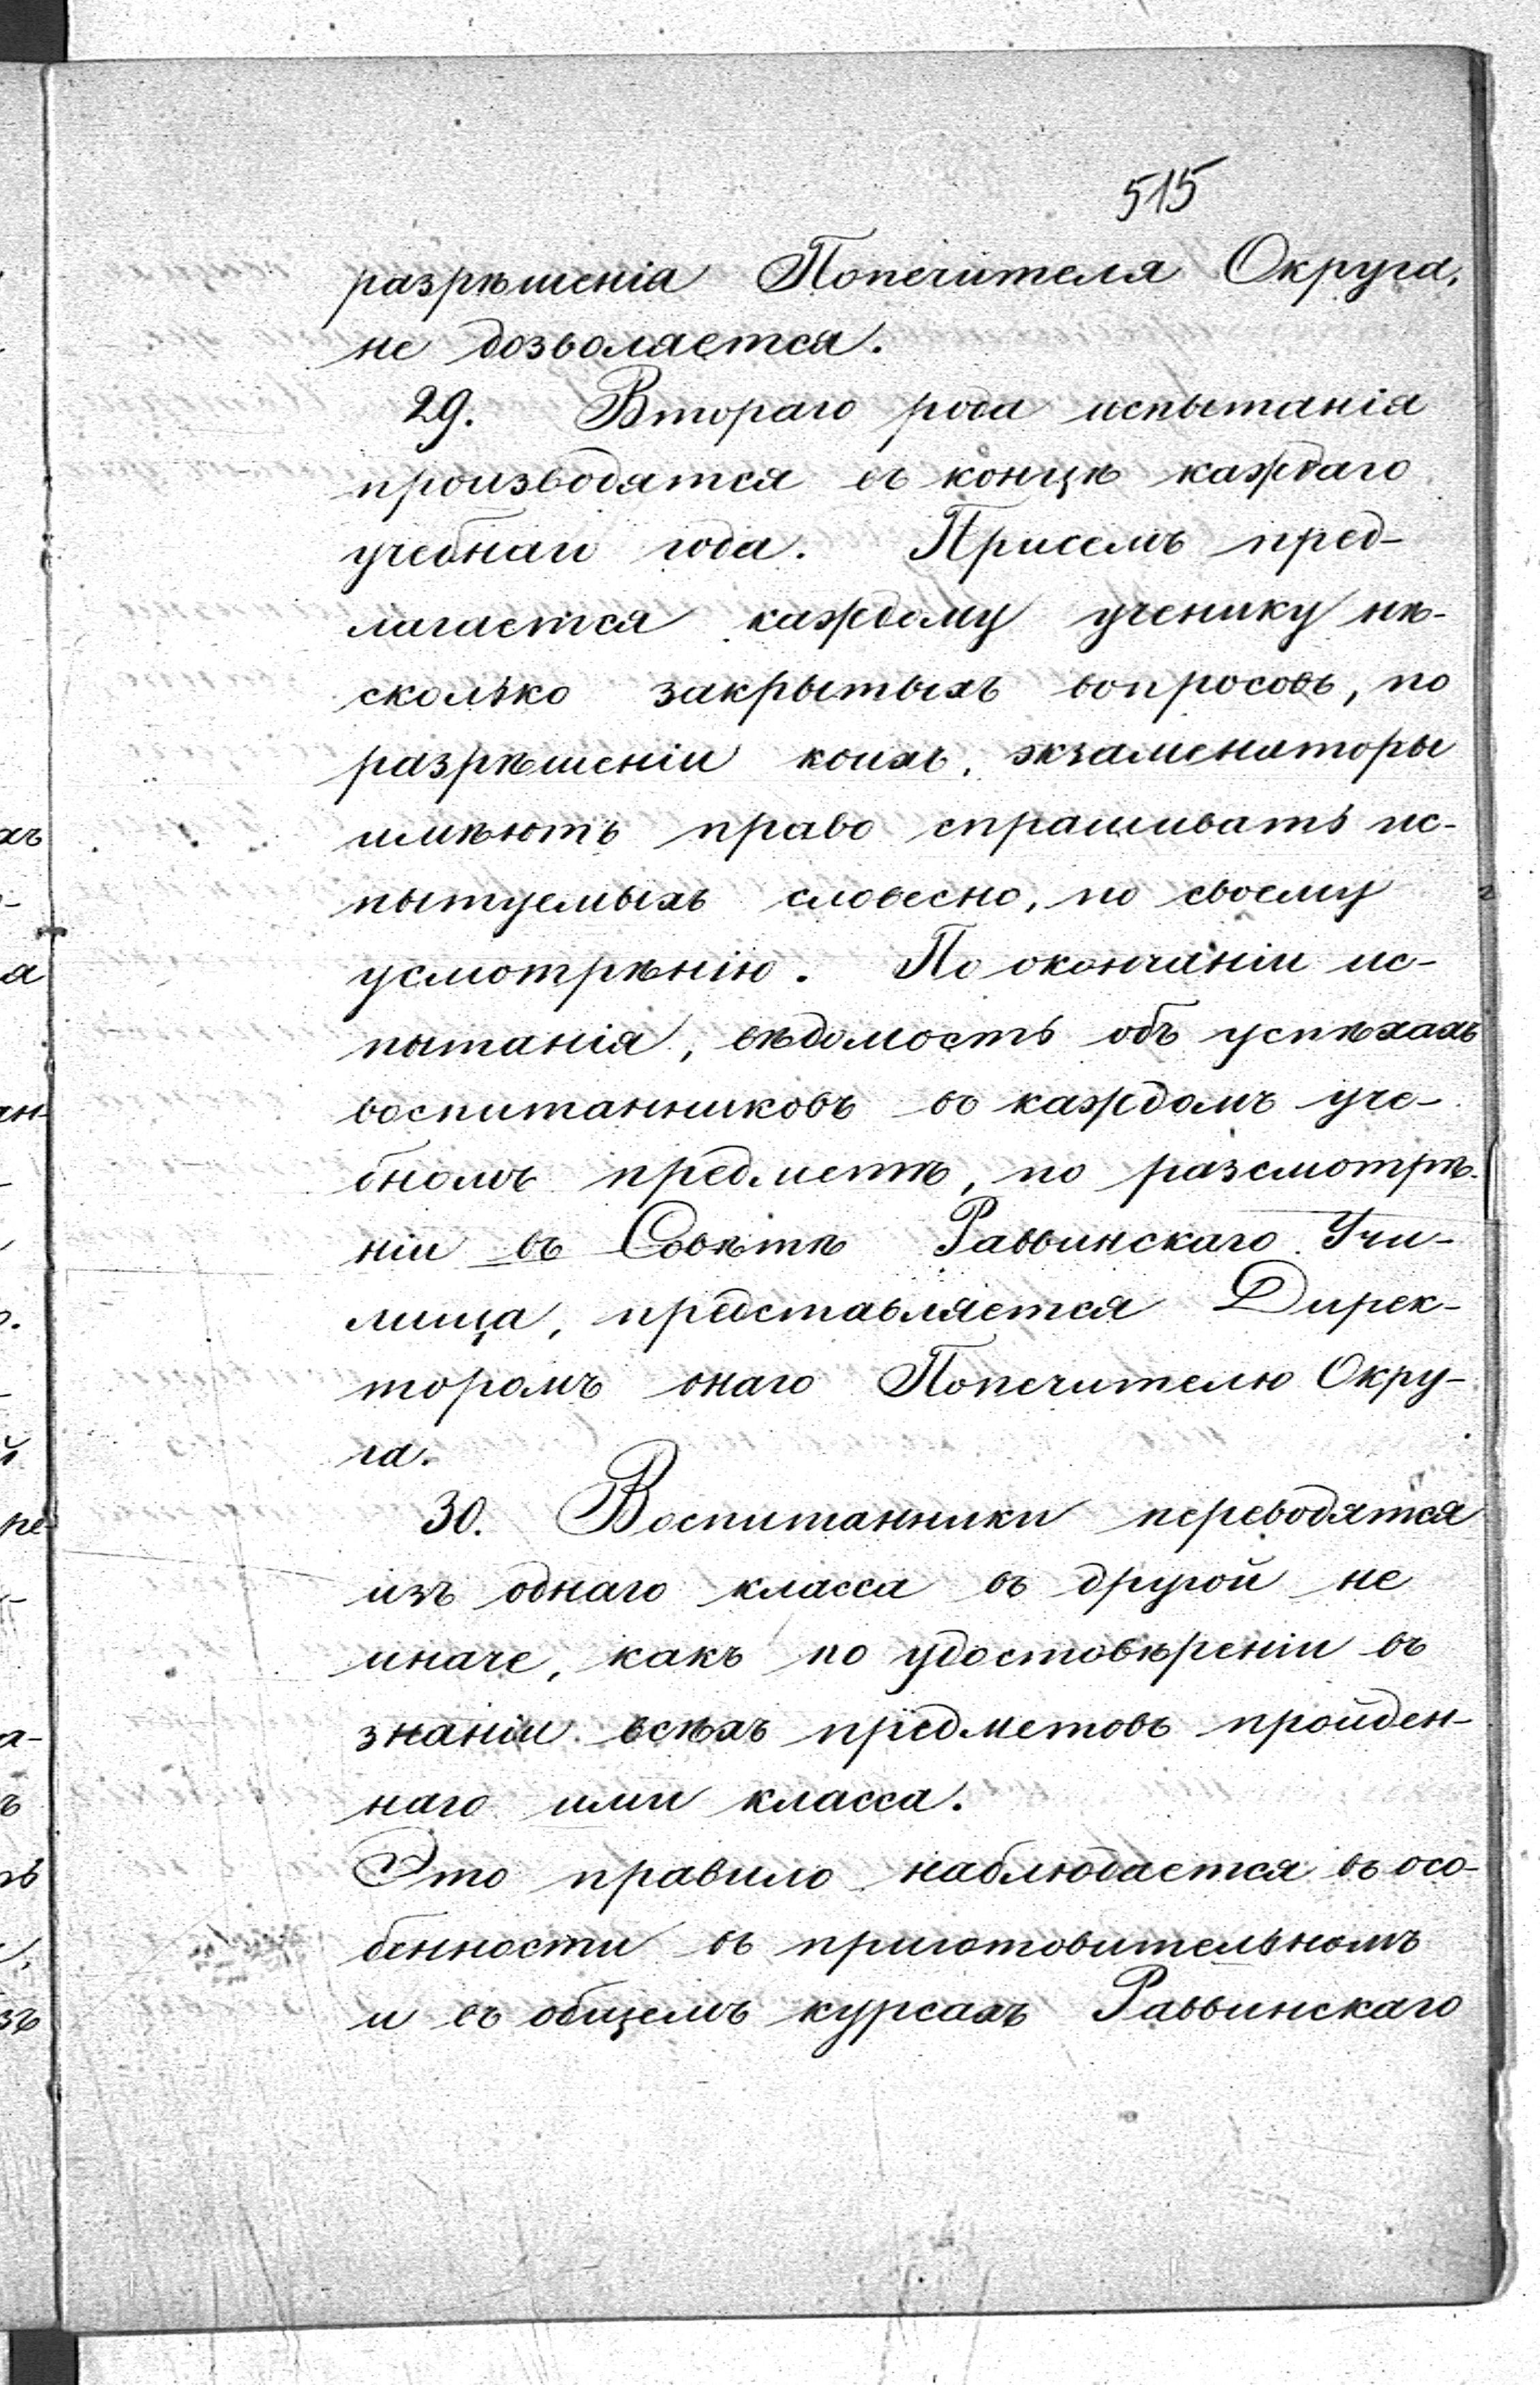 515
разрѣшенія Попечителя Округа,
не дозволяется.
29. Втораго рода испытанія
производятся въ концѣ каждаго
учебнаго года. Присемъ пред-
лагается каждому ученику нѣ-
сколько закрытыхъ вопросовъ, по
разрѣшеніи коихъ, экзаменаторы
имѣютъ право спрашивать ис-
пытуемыхъ словесно, по своему
усмотрѣнію. По окончаніи ис-
пытанія, вѣдомость объ успѣхахъ
воспитанниковъ во каждомъ уче-
бномъ предметѣ, по разсмотрѣ-
ніи въ Совѣтѣ Раввинскаго Учи-
лища, представляется Дирек-
торомъ онаго Попечителю Окру-
га.
30. Воспитанники переводятся
изъ однаго класса въ другой не
иначе, какъ по удостовѣреніи въ
знаніи всѣхъ предметовъ пройден-
наго ими класса.
Это правило наблюдается въ осо-
бенности въ приготовительномъ
и въ общемъ курсахъ Раввинскаго